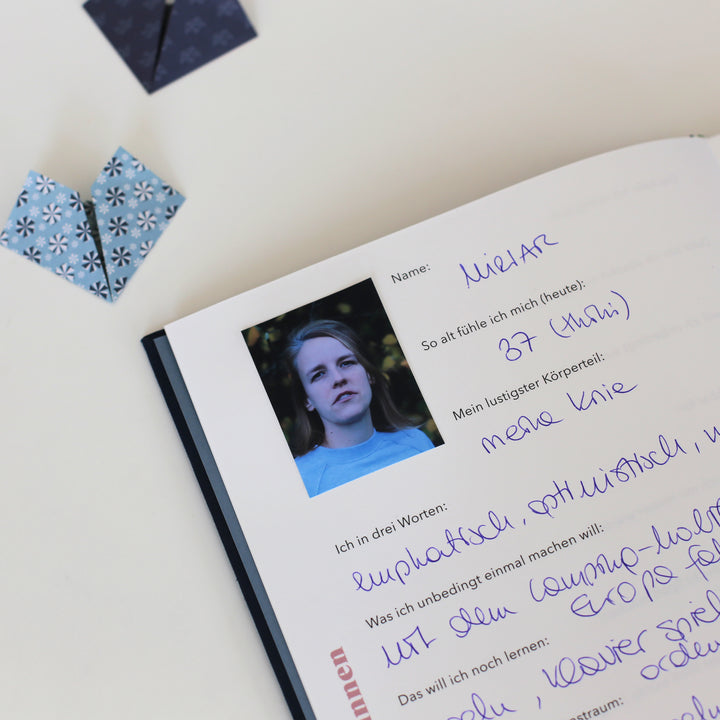 Name: MIRIAR
So alt fühle ich mich (heute):
37 (hihi)
Mein lustigster Körperteil:
meine Knie
Ich in drei Worten:
emphatisch, optimistisch,
Was ich unbedingt einmal machen will:
mit dem Camping-
Europa
Das will ich noch lernen:
, Klavier spiel
orden
straum:
nnen